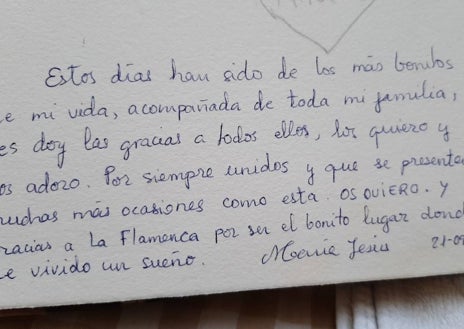 Estos días han sido de los más bonitos
e mi vida, acompañada de toda mi familia,
es doy las gracias a todos ellos, los quiero y
os adoro. Por siempre unidos y que se presente
uchas más ocasiones como esta. OS QUIERO. y
racias a La Flamenca por ser el bonito lugar dond
e vivido un sueño. María Jesús 21-0